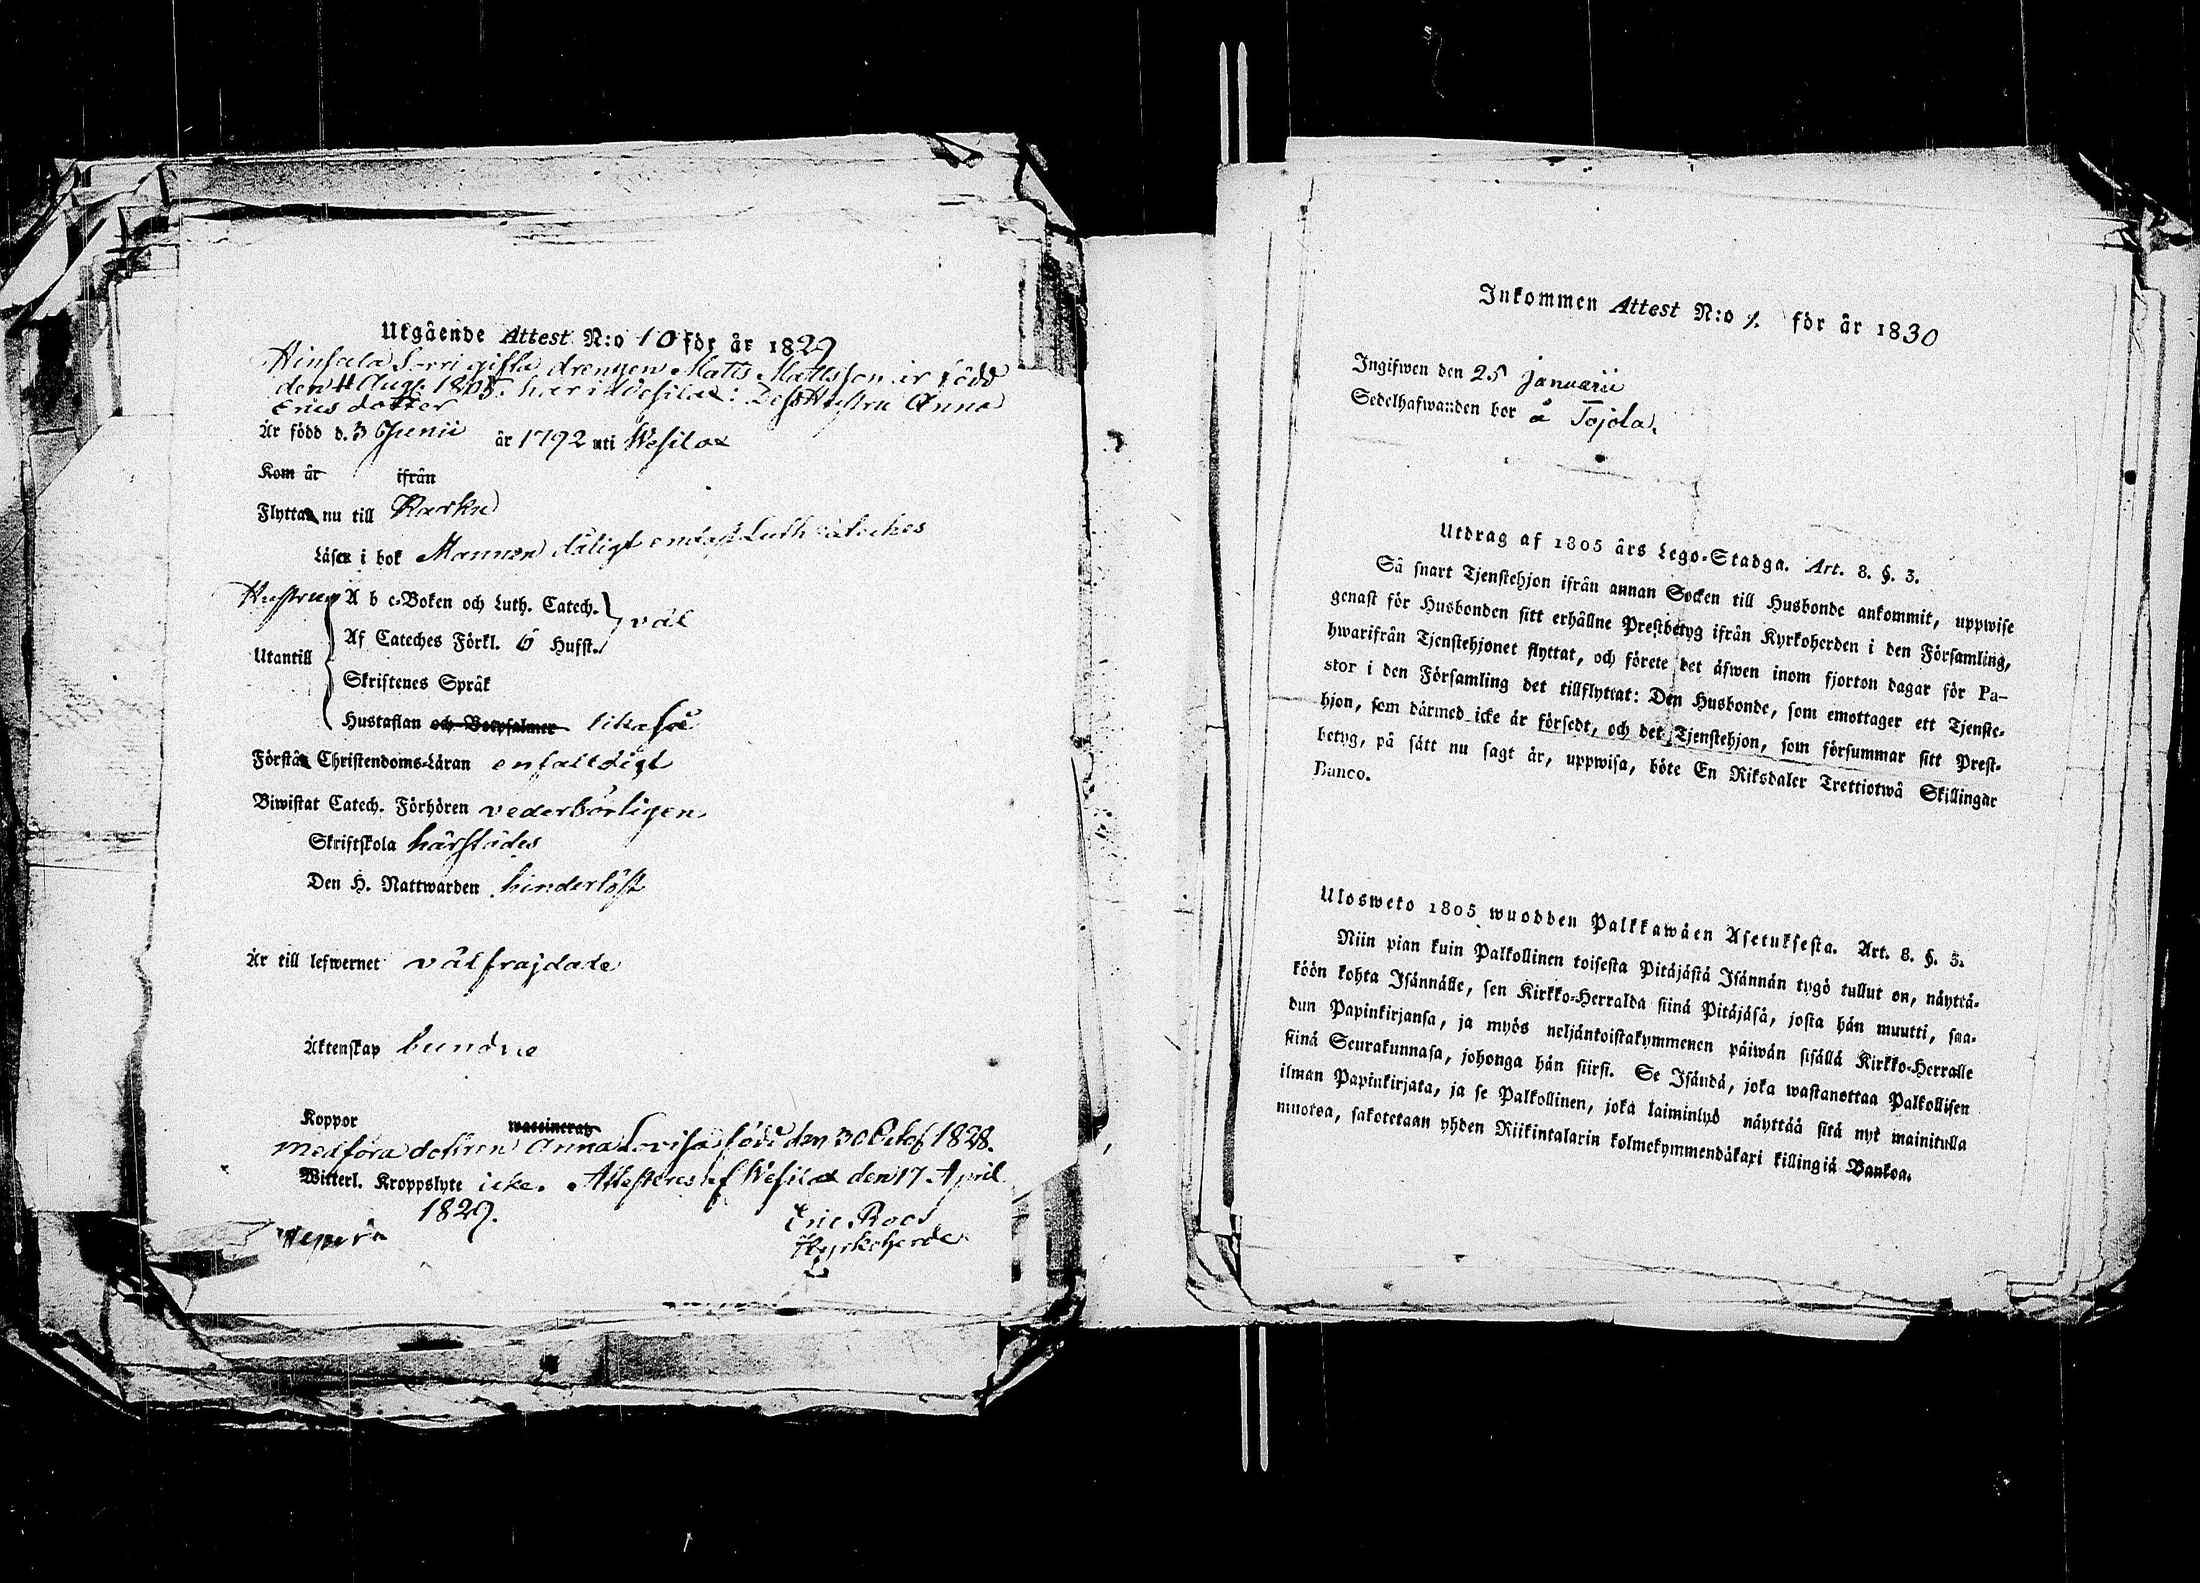 Utgående Attest N:o 10 för år 1829
Hinsala Sorri gifta drengen Matts Mattsson är född
den 4 Aug. 1805. här i Wesilax: Dess Hustru Anna
Ericsdotter
Är född d. 3 Junii år 1792 uti Wesilax
Kom år ifrån
Flytta nu till Karku
Läser i bok Mannen dåligt endast Luth Cateches
Hustrun A b c-Boken och Luth. Catech. väl
Af Cateches Förkl. 6 Hufst.
Utantill
Skriftenes Språk
Hustaflan och Botpsalmer likaså
Förstå Christendoms-Läran enfaldigt
Biwistat Catech. Förhören vederbörligen
Skriftskola härstädes
Den H. Nattwarden hinderlöst
Är till lefwernet välfrajdade
Äktenskap bundne
Koppor waccinerat
medföra dottren Anna Lovisa född den 30 Octob 1828.
Witterl. Kroppslyte icke. Attesteras af Wesilax den 17 April
1829.
Eric Roos
Kyrkoherde
Inkommen Attest N:o 1. för år 1830
Ingifwen den 25 Januarii
Sedelhafwanden bor å Tojola.
Utdrag af 1805 års Lego-Stadga. Art. 8. §. 3.
Så snart Tjenstehjon ifrån annan Socken till Husbonde ankommit, uppwise
genast för Husbonden sitt erhållne Prestbetyg ifrån Kyrkoherden i den Församling,
hwarifrån Tjenstehjonet flyttat, och förete det äfwen inom fjorton dagar för Pa-
stor i den Församling det tillflyttat: Den Husbonde, som emottager ett Tjenste-
hjon, som därmed icke är försedt, och det Tjenstehjon, som försummar sitt Prest-
betyg, på sätt nu sagt är, uppwisa, böte En Riksdaler Trettiotwå Skillingar
Banco.
Ulosweto 1805 wuodden Palkkawäen Asetuksesta. Art. 8. §. 3.
Niin pian kuin Palkollinen toisesta Pitäjästä Isännän tygö tullut on, näyttä-
köön kohta Isännälle, sen Kirkko-Herralda siinä Pitäjäsä, josta hän muutti, saa-
dun Papinkirjansa, ja myös neljäntoistakymmenen päiwän sisällä Kirkko-Herralle
siinä Seurakunnasa, johonga hän siirsi. Se Isändä, joka wastanottaa Palkollisen
ilman Papinkirjata, ja se Palkollinen, joka laiminlyö näyttää sitä nyt mainitulla
muotoa, sakotetaan yhden Riikintalarin kolmekymmendäkaxi killingiä Bankoa.